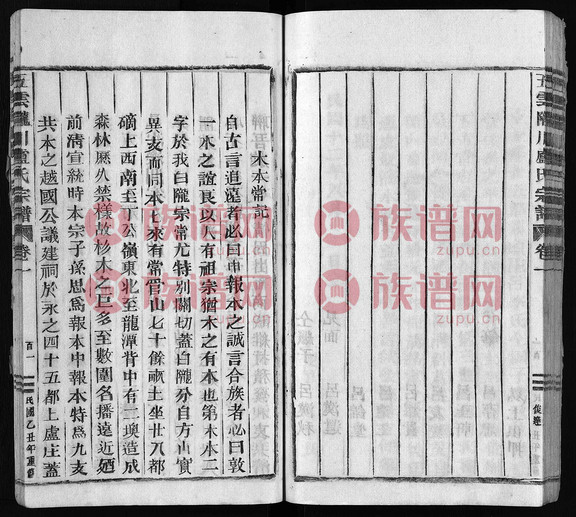 五雲隴川盧氏宗譜
卷一
木本常記
自古言追遠者必曰申報本之誠言合族者必曰敦
一本之誼良以人有祖宗猶木之有本也第木本二
字於我白隴宗常尤特別關切蓋白隴分自方山實
異支而同本七來有常膋山七十餘畝土坐廿八都
磜上西南至丁公嶺東北至龍潭背中有二墺造成
森林歷久禁樣故杉木之巨多至數圍名播遠近廼
前清宣統時本宗子孫思爲報本中報本特爲九支
共本之越國公議建祠於永之四十五都上盧庄蓋
五雲隴川盧氏宗譜
卷一
百一
民國乙丑年重修
族谱网
族谱网